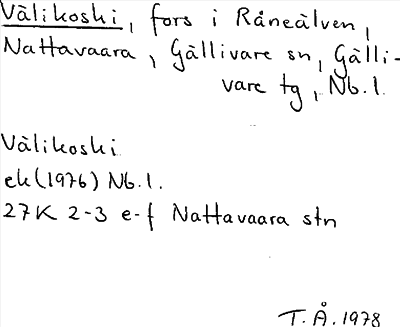 Välikoski, fors i Råneälven,
Nattavaara, Gällivare sn, Gälli-
vare tg, Nb.l.
Välikoski
ek (1976) Nb.l.
27K 2-3 e-f Nattavaara stn
T.Å. 1978